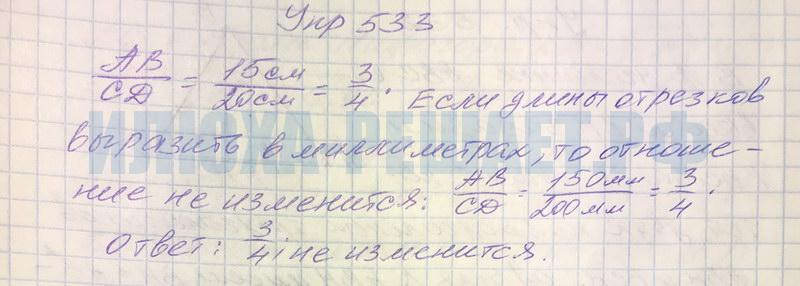 Упр 533
AB/CD = 15см/20см = 3/4. Если длины отрезков
выразить в миллиметрах, то отноше-
ние не изменится: AB/CD = 150мм/200мм = 3/4.
Ответ: 3/4; не изменится.
ИЛЮХА РЕШАЕТ.РФ